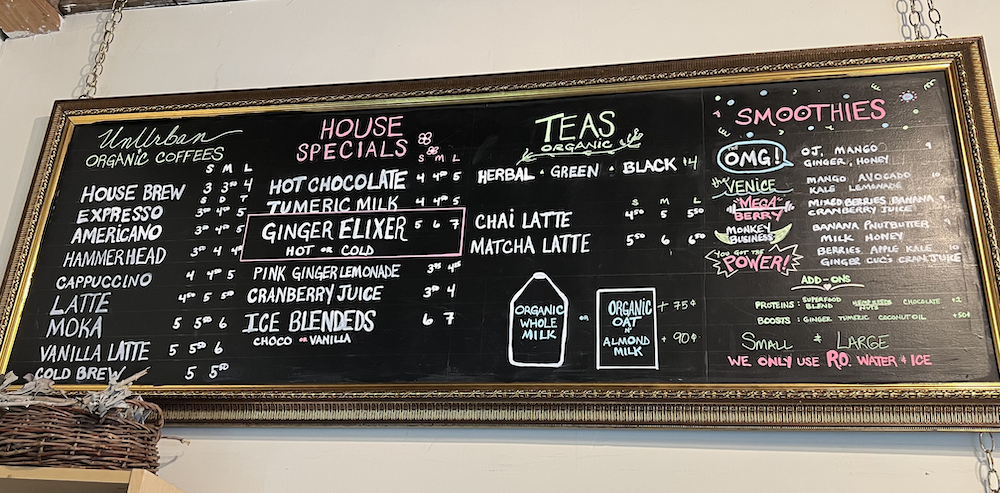 UnUrban
ORGANIC COFFEES
S M L
HOUSE BREW 3 3⁵⁰ 4
S D T
EXPRESSO 3⁵⁰ 4⁵⁰ 5
AMERICANO 3⁵⁰ 4 4⁵⁰
HAMMERHEAD 3⁵⁰ 4 4⁵⁰
CAPPUCCINO 4 4⁵⁰ 5
LATTE 4⁵⁰ 5 5⁵⁰
MOKA 5 5⁵⁰ 6
VANILLA LATTE 5 5⁵⁰ 6
COLD BREW 5 5⁵⁰
HOUSE
SPECIALS
S M L
HOT CHOCOLATE 4 4⁵⁰ 5
TUMERIC MILK 4 4⁵⁰ 5
GINGER ELIXER 5 6 7
HOT OR COLD
PINK GINGER LEMONADE
CRANBERRY JUICE 3⁵⁰ 4
ICE BLENDEDS 6 7
CHOCO OR VANILLA
TEAS
ORGANIC
HERBAL • GREEN • BLACK $4
S M L
CHAI LATTE 4⁵⁰ 5 5⁵⁰
MATCHA LATTE 5⁵⁰ 6 6⁵⁰
ORGANIC
WHOLE
MILK
OR
ORGANIC
OAT
N'
ALMOND
MILK
+ 75¢
+ 90¢
SMOOTHIES
THE OMG! O.J. MANGO 9
GINGER, HONEY
the VENICE MANGO AVOCADO 10
KALE LEMONADE
MEGA BERRY MIXED BERRIES BANANA 9
CRANBERRY JUICE
MONKEY BUSINESS BANANA PNUTBUTTER
MILK HONEY
YOU GOT THE POWER! BERRIE APPLE KALE 10
GINGER CUC'S CRANJUICE
ADD-ONS
PROTEINS: SUPERFOOD BLEND HEMP SEEDS CHOCOLATE +2
BOOSTS: GINGER TUMERIC COCONUT OIL +50¢
SMALL & LARGE
WE ONLY USE R.O. WATER + ICE